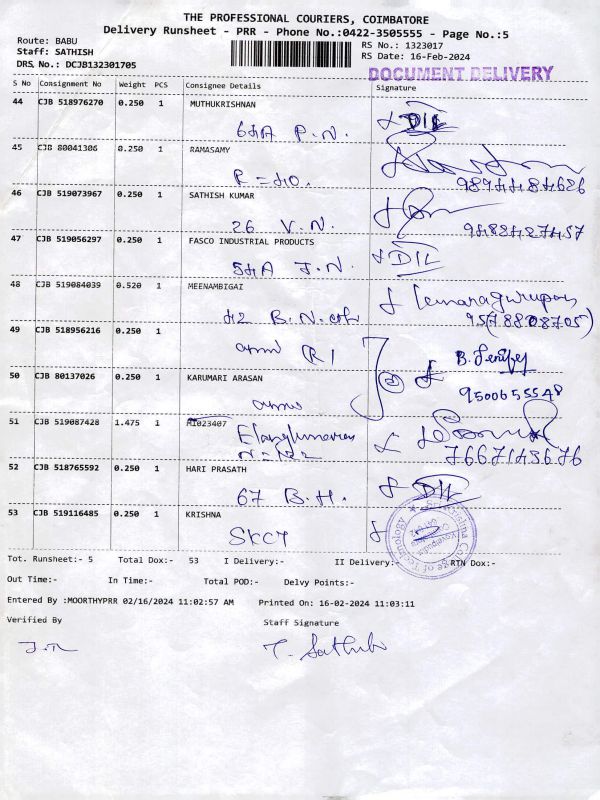 THE PROFESSIONAL COURIERS, COIMBATORE
Delivery Runsheet - PRR - Phone No.:0422-3505555 - Page No.:5
Route: BABU
RS No.: 1323017
Staff: SATHISH
RS Date: 16-Feb-2024
DRS, No.: DCJB132301705
DOCUMENT DELIVERY
S No Consignment No Weight PCS Consignee Details Signature
44 CJB 518976270 0.250 1 MUTHUKRISHNAN
64A P.N. DIL
45 CJB 80041306 0.250 1 RAMASAMY
R=40. 9894484626
46 CJB 519073967 0.250 1 SATHISH KUMAR
26 V.N. 9484274457
47 CJB 519056297 0.250 1 FASCO INDUSTRIAL PRODUCTS
54A J.N. DIL
48 CJB 519084039 0.520 1 MEENAMBIGAI
42 B.N.
49 CJB 518956216 0.250 1
R1 B.
50 CJB 80137026 0.250 1 KARUMARI ARASAN
9500655548
51 CJB 519087428 1.475 1 M1023407
7667145676
52 CJB 518765592 0.250 1 HARI PRASATH
67 B.H. DIL
53 CJB 519116485 0.250 1 KRISHNA
SKCT
Tot. Runsheet:- 5 Total Dox:- 53 I Delivery:- II Delivery:- RTN Dox:-
Out Time:- In Time:- Total POD:- Delvy Points:-
Entered By :MOORTHYPRR 02/16/2024 11:02:57 AM Printed On: 16-02-2024 11:03:11
Verified By Staff Signature
T. Sathish